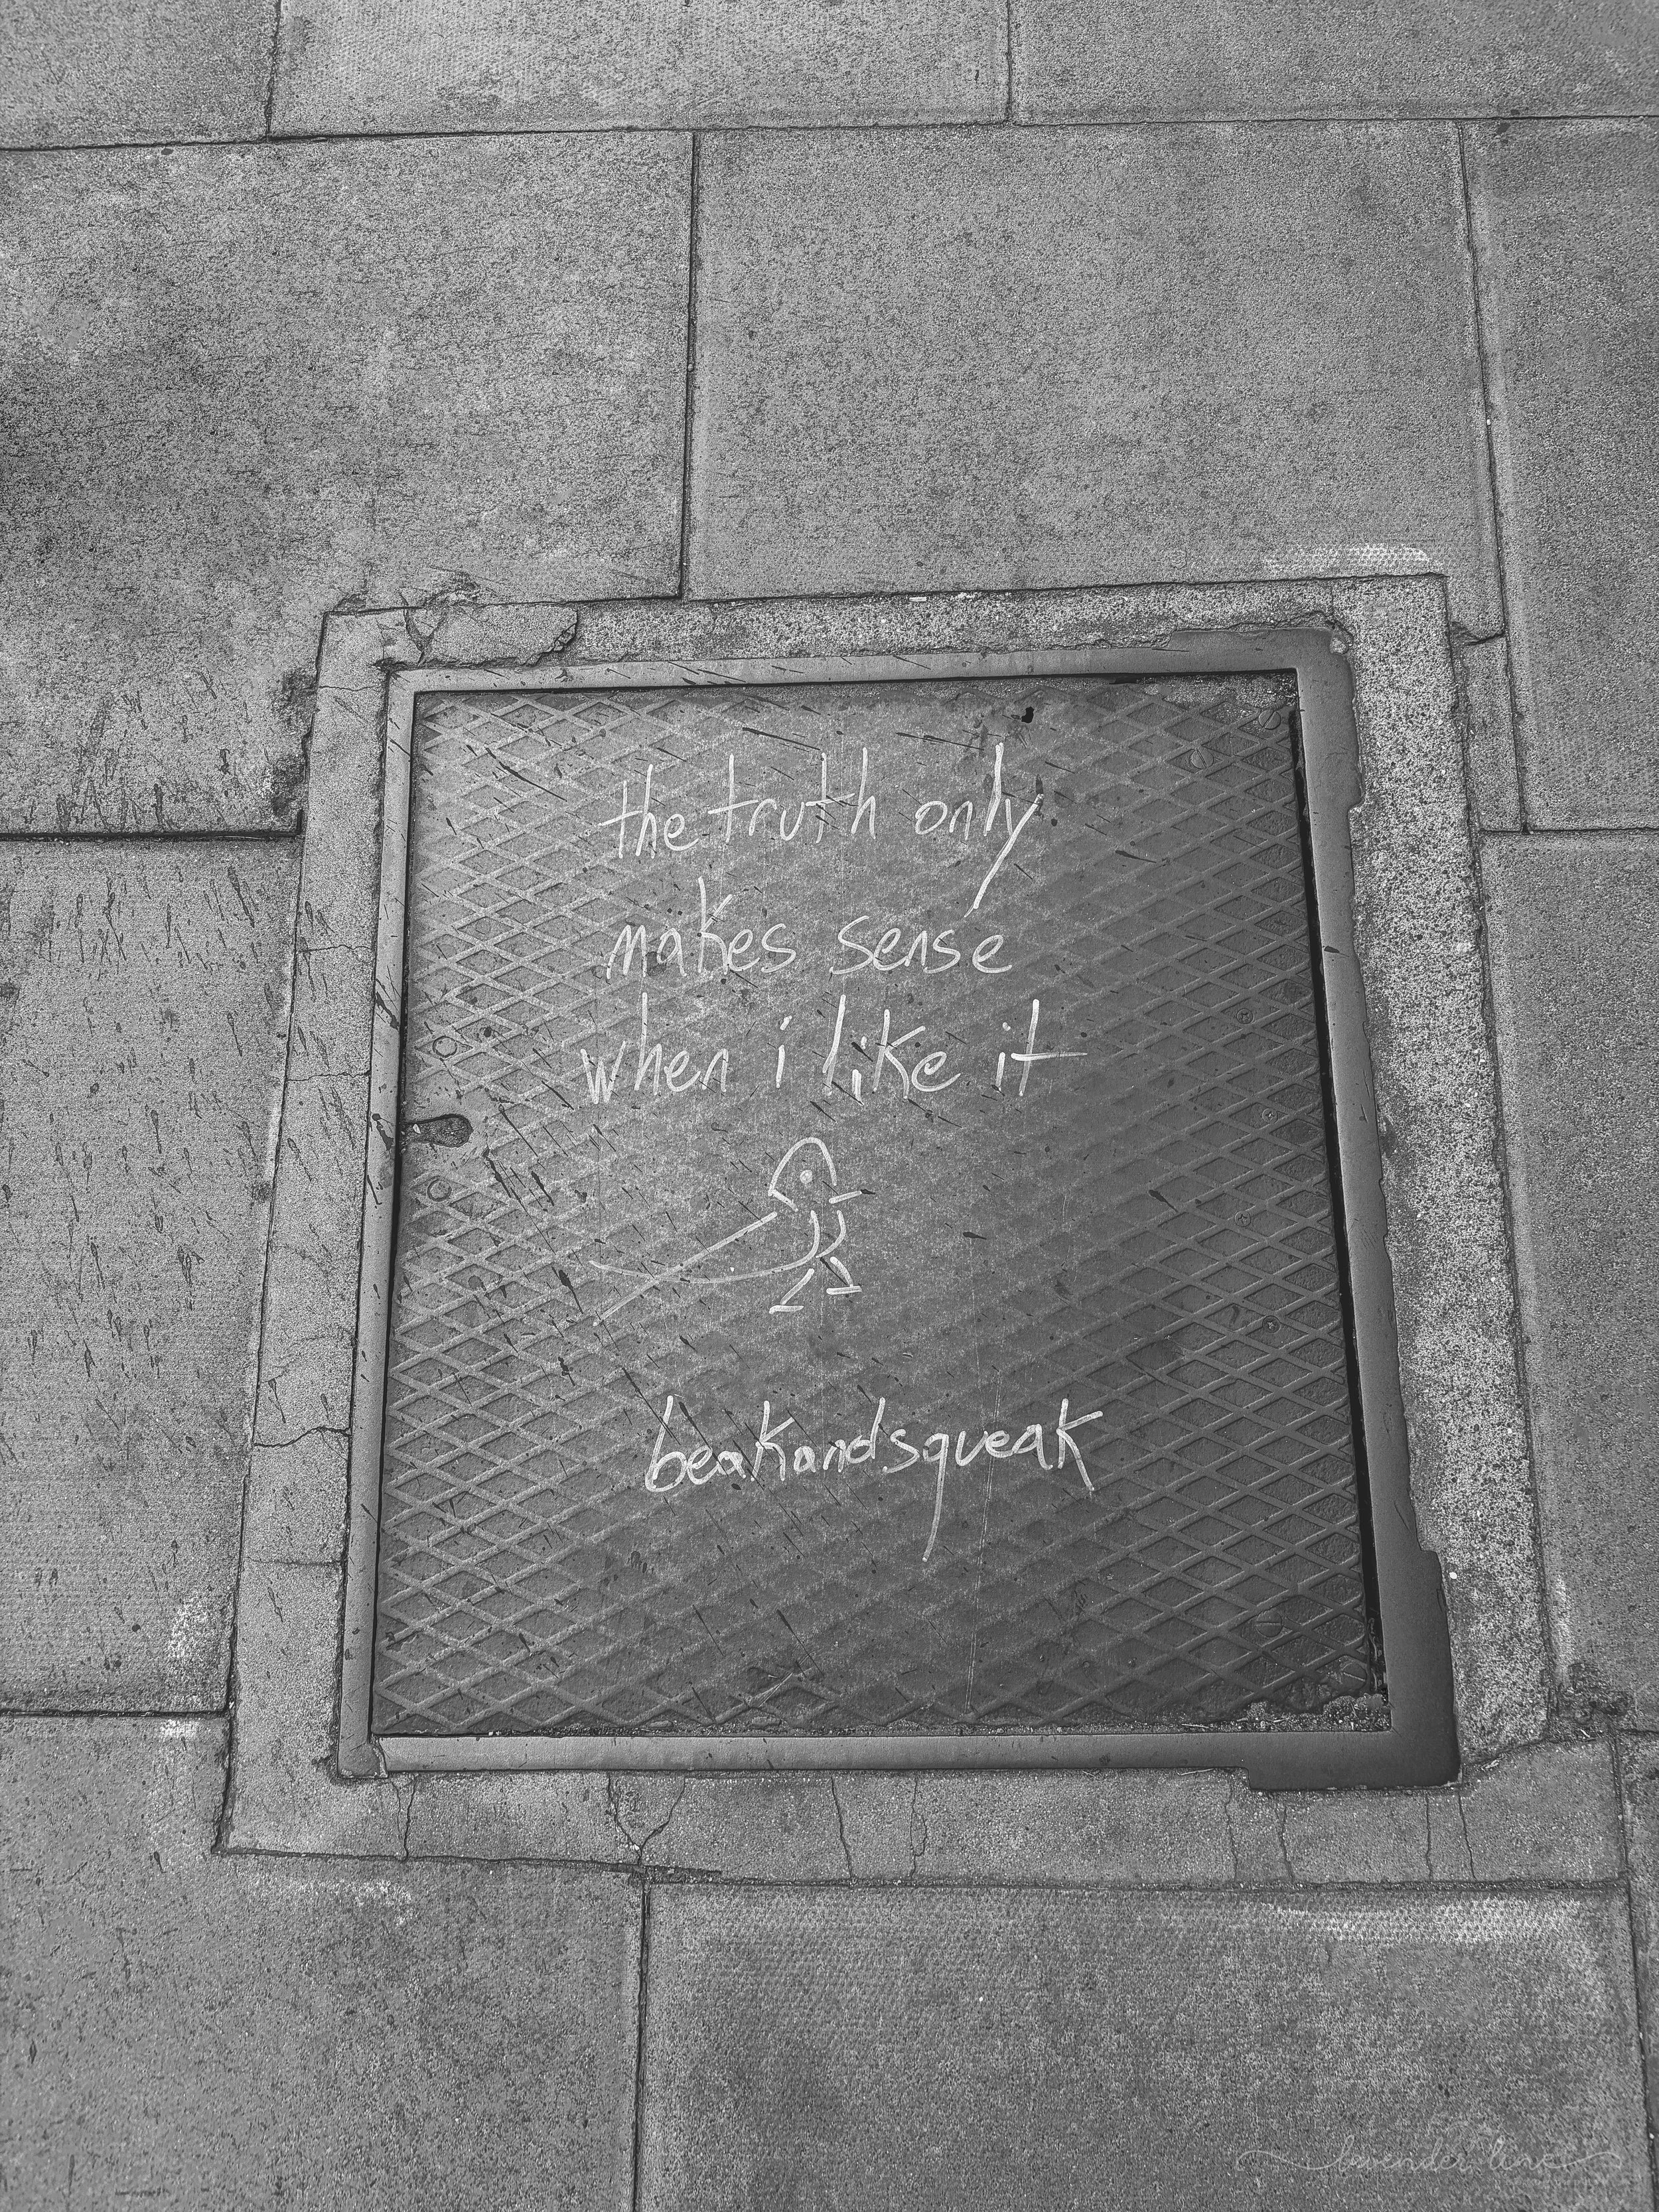 the truth only
makes sense
when i like it
beakandsqueak
lavender line